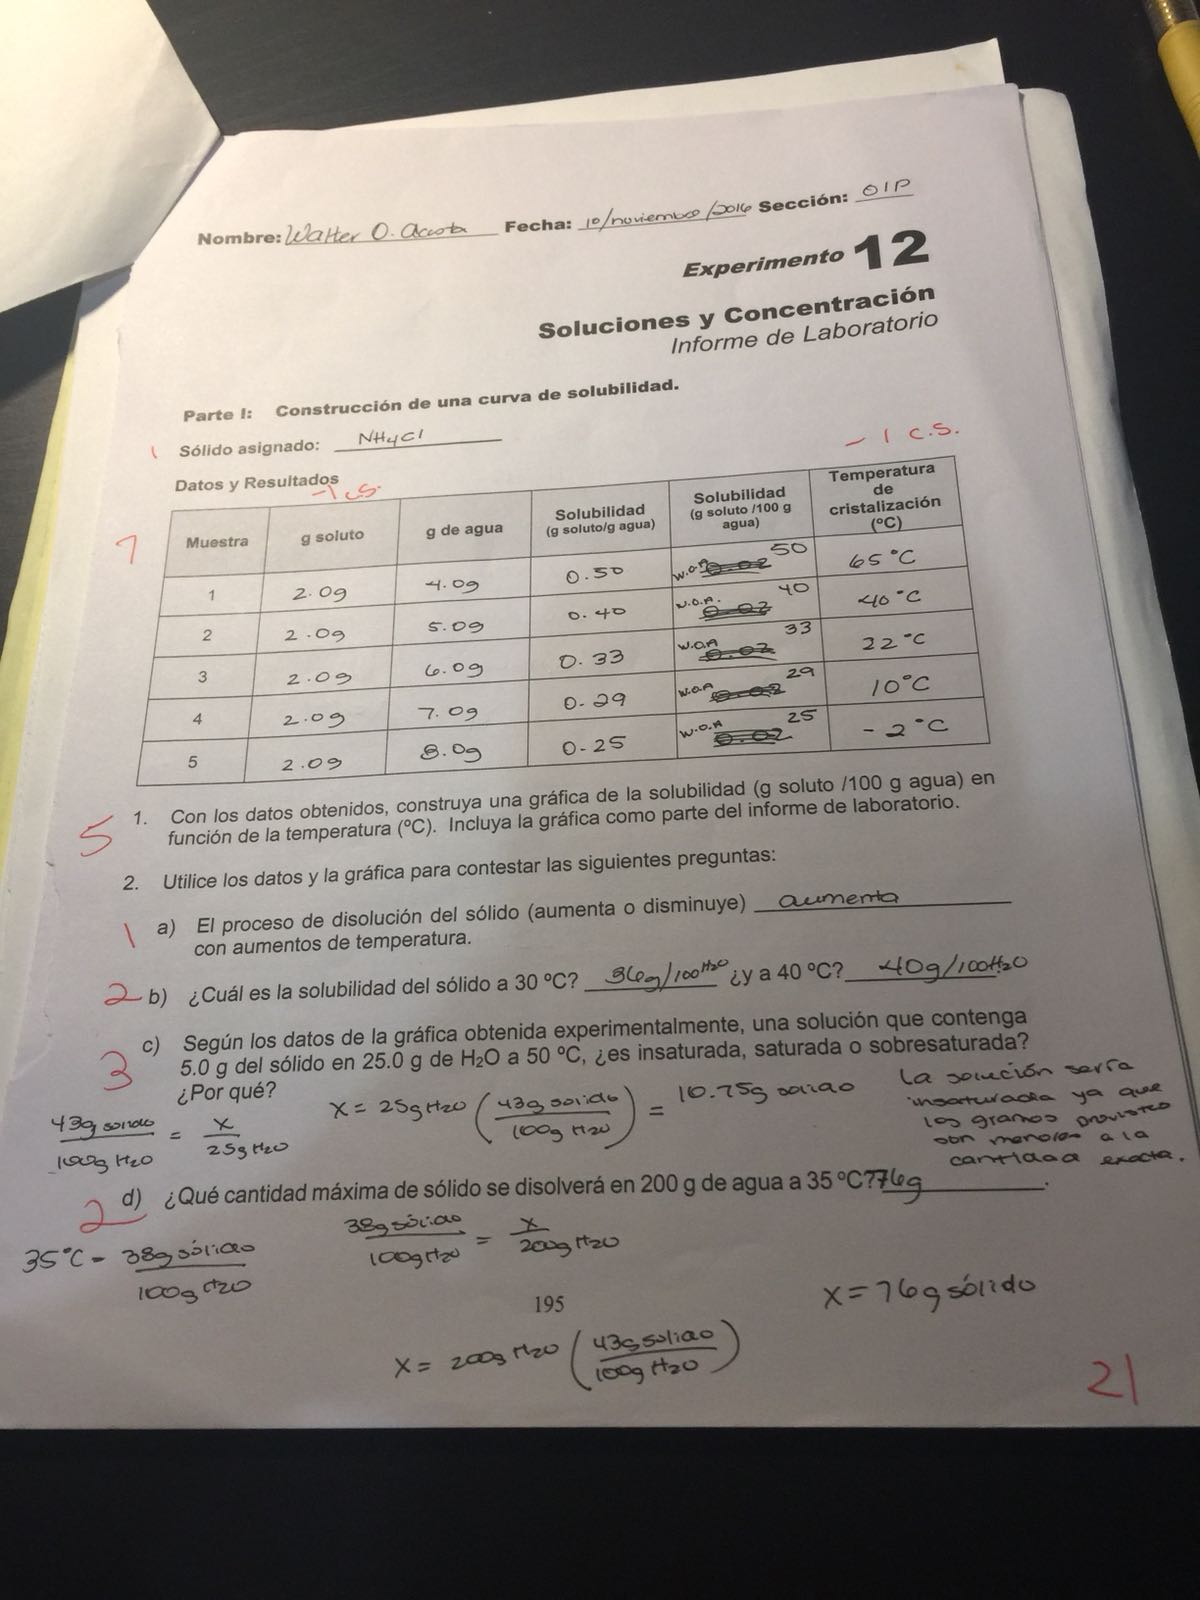 Nombre: Walter O. Acosta Fecha: 10/noviembre/2016 Sección: 01P
Experimento 12
Soluciones y Concentración
Informe de Laboratorio
Parte I: Construcción de una curva de solubilidad.
1 Sólido asignado: NH4Cl
-1 c.s.
Datos y Resultados
-1 c.s.
7
Muestra g soluto g de agua Solubilidad (g soluto/g agua) Solubilidad (g soluto /100 g agua) Temperatura de cristalización (ºC)
1 2.0g 4.0g 0.50 W.O.A 0.02 50 65°C
2 2.0g 5.0g 0.40 W.O.A. 0.02 40 40°C
3 2.0g 6.0g 0.33 W.O.A 0.02 33 22°C
4 2.0g 7.0g 0.29 W.O.A 0.02 29 10°C
5 2.0g 8.0g 0.25 W.O.A 0.02 25 -2°C
5 1. Con los datos obtenidos, construya una gráfica de la solubilidad (g soluto /100 g agua) en
función de la temperatura (ºC). Incluya la gráfica como parte del informe de laboratorio.
2. Utilice los datos y la gráfica para contestar las siguientes preguntas:
1 a) El proceso de disolución del sólido (aumenta o disminuye) aumenta
con aumentos de temperatura.
2 b) ¿Cuál es la solubilidad del sólido a 30 ºC? 36g/100H2O ¿y a 40 ºC? 40g/100H2O
3 c) Según los datos de la gráfica obtenida experimentalmente, una solución que contenga
5.0 g del sólido en 25.0 g de H2O a 50 ºC, ¿es insaturada, saturada o sobresaturada?
¿Por qué?
43g solido/100g H2O = x/25g H2O
X = 25g H2O (43g solido/100g H2O) = 10.75g solido
La solución sería
insaturada ya que
los gramos provistos
son menores a la
cantidad exacta.
2 d) ¿Qué cantidad máxima de sólido se disolverá en 200 g de agua a 35 ºC? 76g.
35°C = 38g sólido/100g H2O
38g sólido/100g H2O = x/200g H2O
X = 76g sólido
195
X = 200g H2O (43g solido/100g H2O)
21